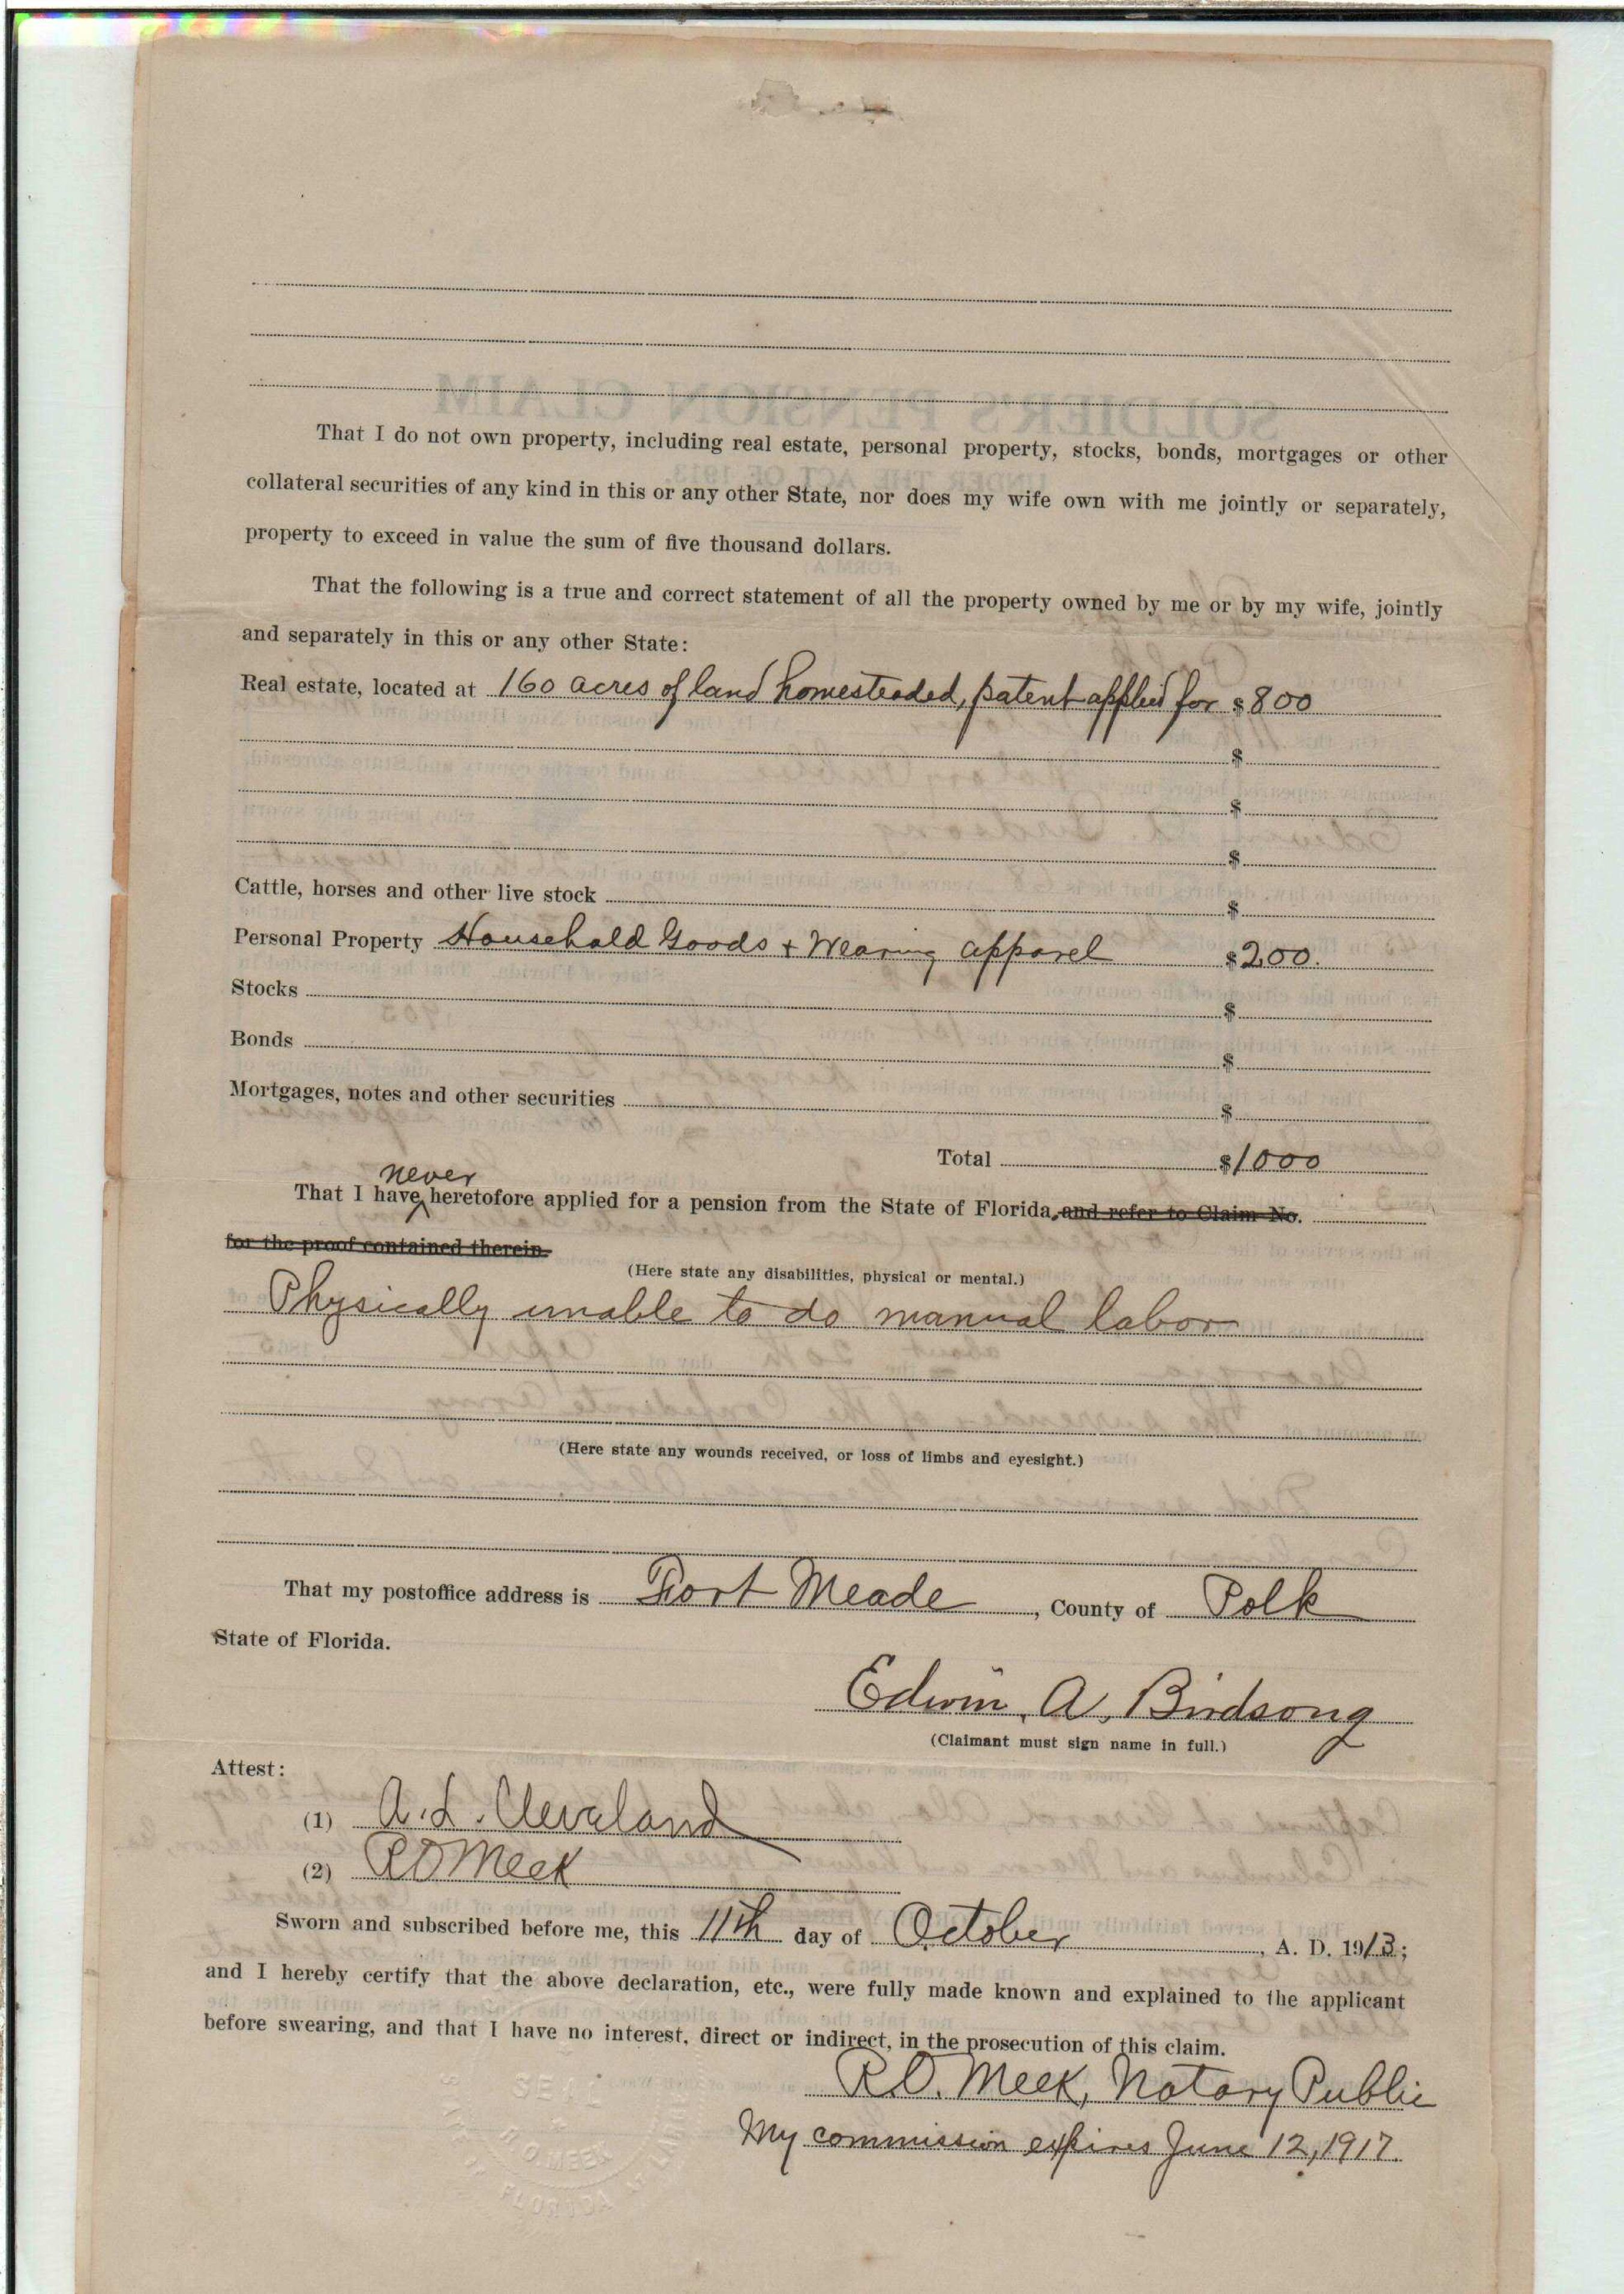 That I do not own property, including real estate, personal property, stocks, bonds, mortgages or other
collateral securities of any kind in this or any other State, nor does my wife own with me jointly or separately,
property to exceed in value the sum of five thousand dollars.
That the following is a true and correct statement of all the property owned by me or by my wife, jointly
and separately in this or any other State:
Real estate, located at 160 acres of land homesteaded, patent applied for $800
$
$
$
Cattle, horses and other live stock $
Personal Property Household Goods + Wearing apparel $200.
Stocks $
Bonds $
Mortgages, notes and other securities $
Total $1000
never
That I have heretofore applied for a pension from the State of Florida, and refer to Claim No.
for the proof contained therein.
(Here state any disabilities, physical or mental.)
Physically unable to do manual labor
(Here state any wounds received, or loss of limbs and eyesight.)
That my postoffice address is Fort Meade, County of Polk
State of Florida.
Edwin, A, Birdsong
(Claimant must sign name in full.)
Attest:
(1) A. L. Cleveland
(2) R O Meek
Sworn and subscribed before me, this 11th day of October, A. D. 1913;
and I hereby certify that the above declaration, etc., were fully made known and explained to the applicant
before swearing, and that I have no interest, direct or indirect, in the prosecution of this claim.
R.O. Meek, Notary Public
My commission expires June 12, 1917.
SEAL
R O MEEK
FLORIDA